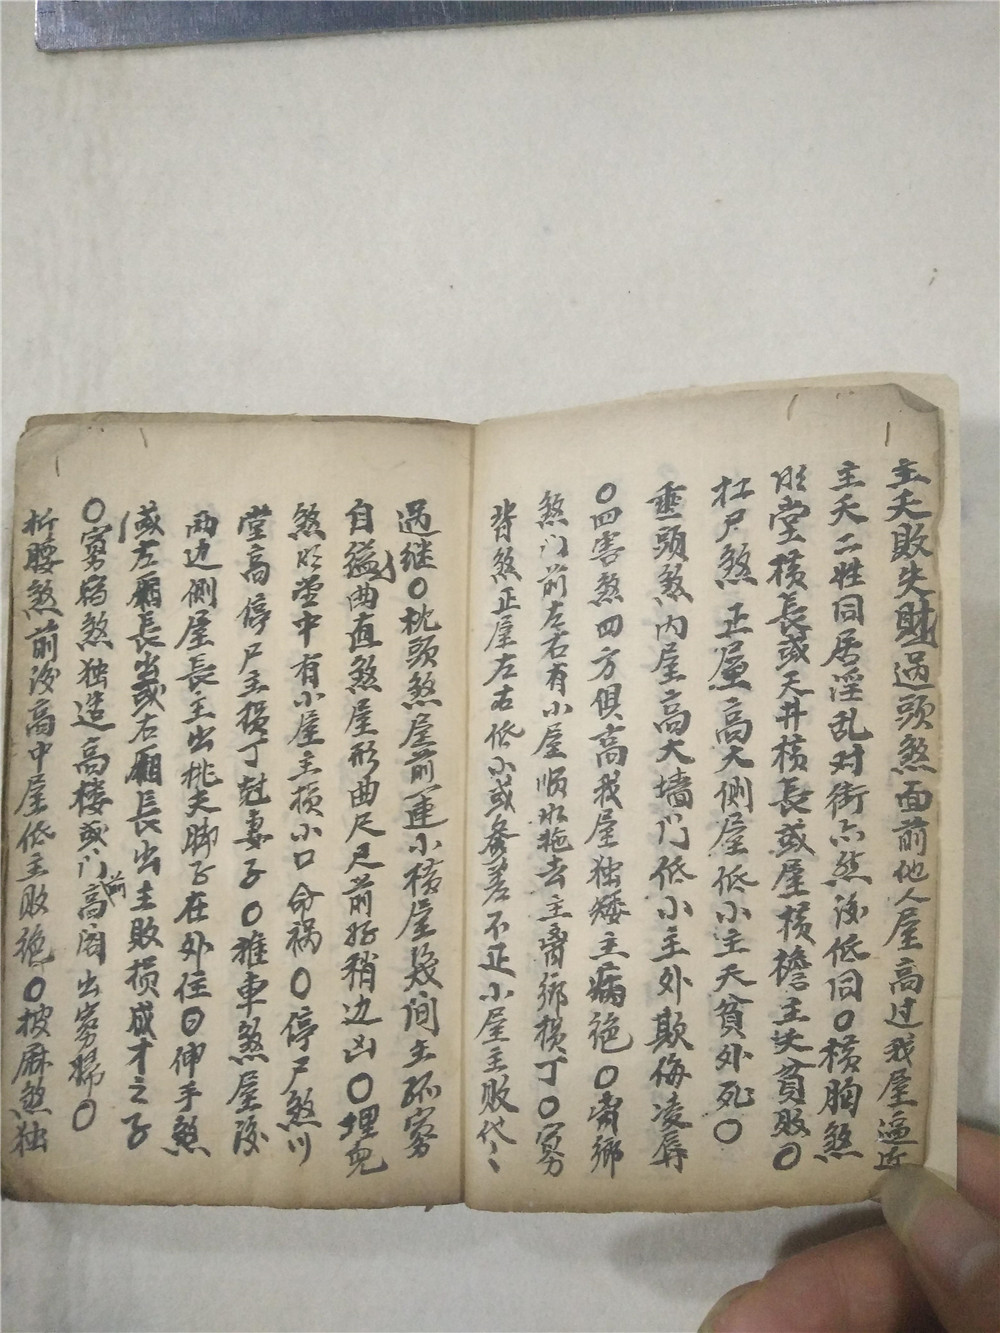 主夭敗失財過頭煞面前他人屋高过我屋逼近
主夭二姓同居淫乱对街亦煞後低同〇横胸煞
明堂横長或天井横長或屋横檐主夭貧敗〇
扛尸煞正屋高大側屋低小主夭貧外死〇
垂頭煞内屋高大墻门低小主外欺侮凌辱
〇四害煞四方俱高我屋独矮主病绝〇离鄉
煞门前左右有小屋順水拖去主离鄉损丁〇寡
背煞正屋左右低小或参差不正小屋主败代〻
过继〇枕頭煞屋前連小横屋幾间主孤寡
自缢曲直煞屋形曲尺尺前好稍边凶〇埋兒
煞明堂中有小屋主损小口命祸〇停尸煞川
堂高停尸主损丁尅妻子〇推車煞屋後
两边側屋長主出挑夫脚子在外住〇伸手煞
或左廂長出或右廂長出主敗损成才之子
〇寡宿煞独造高楼或门前高阁出寡婦〇
折腰煞前後高中屋低主败绝〇披麻煞独